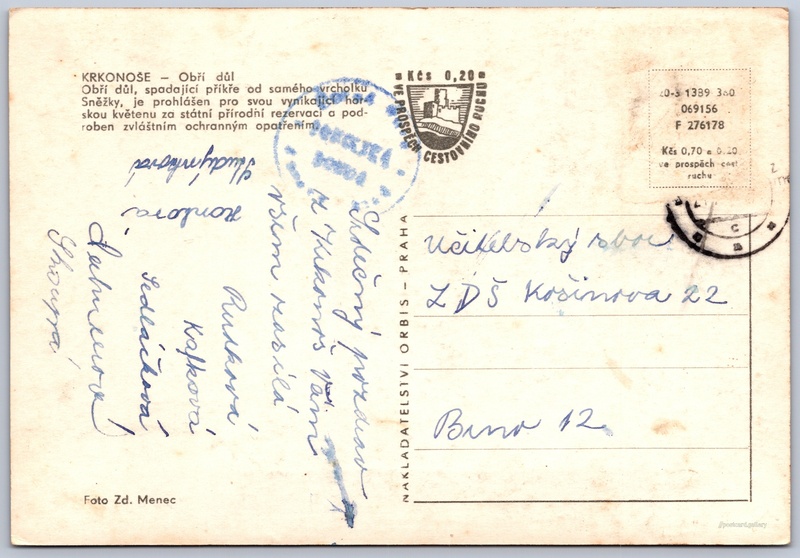 KRKONOŠE – Obří důl
Obří důl, spadající příkře od samého vrcholku
Sněžky, je prohlášen pro svou vynikající hor-
skou květenu za státní přírodní rezervaci a pod-
roben zvláštním ochranným opatřením.
Kčs 0,20
VE PROSPĚCH CESTOVNÍHO RUCHU
20-3 1389 380
069156
F 276178
Kčs 0,70 a 0.20
ve prospěch cest.
ruchu
BOUDA
Srdečný pozdrav
z Krkonoš Vám
všem zasílá
Rudková
Kafková
Sedláčková
Konková
Učitelský sbor
ZDŠ Košinova 22
Brno 12
NAKLADATELSTVÍ ORBIS – PRAHA
Foto Zd. Menec